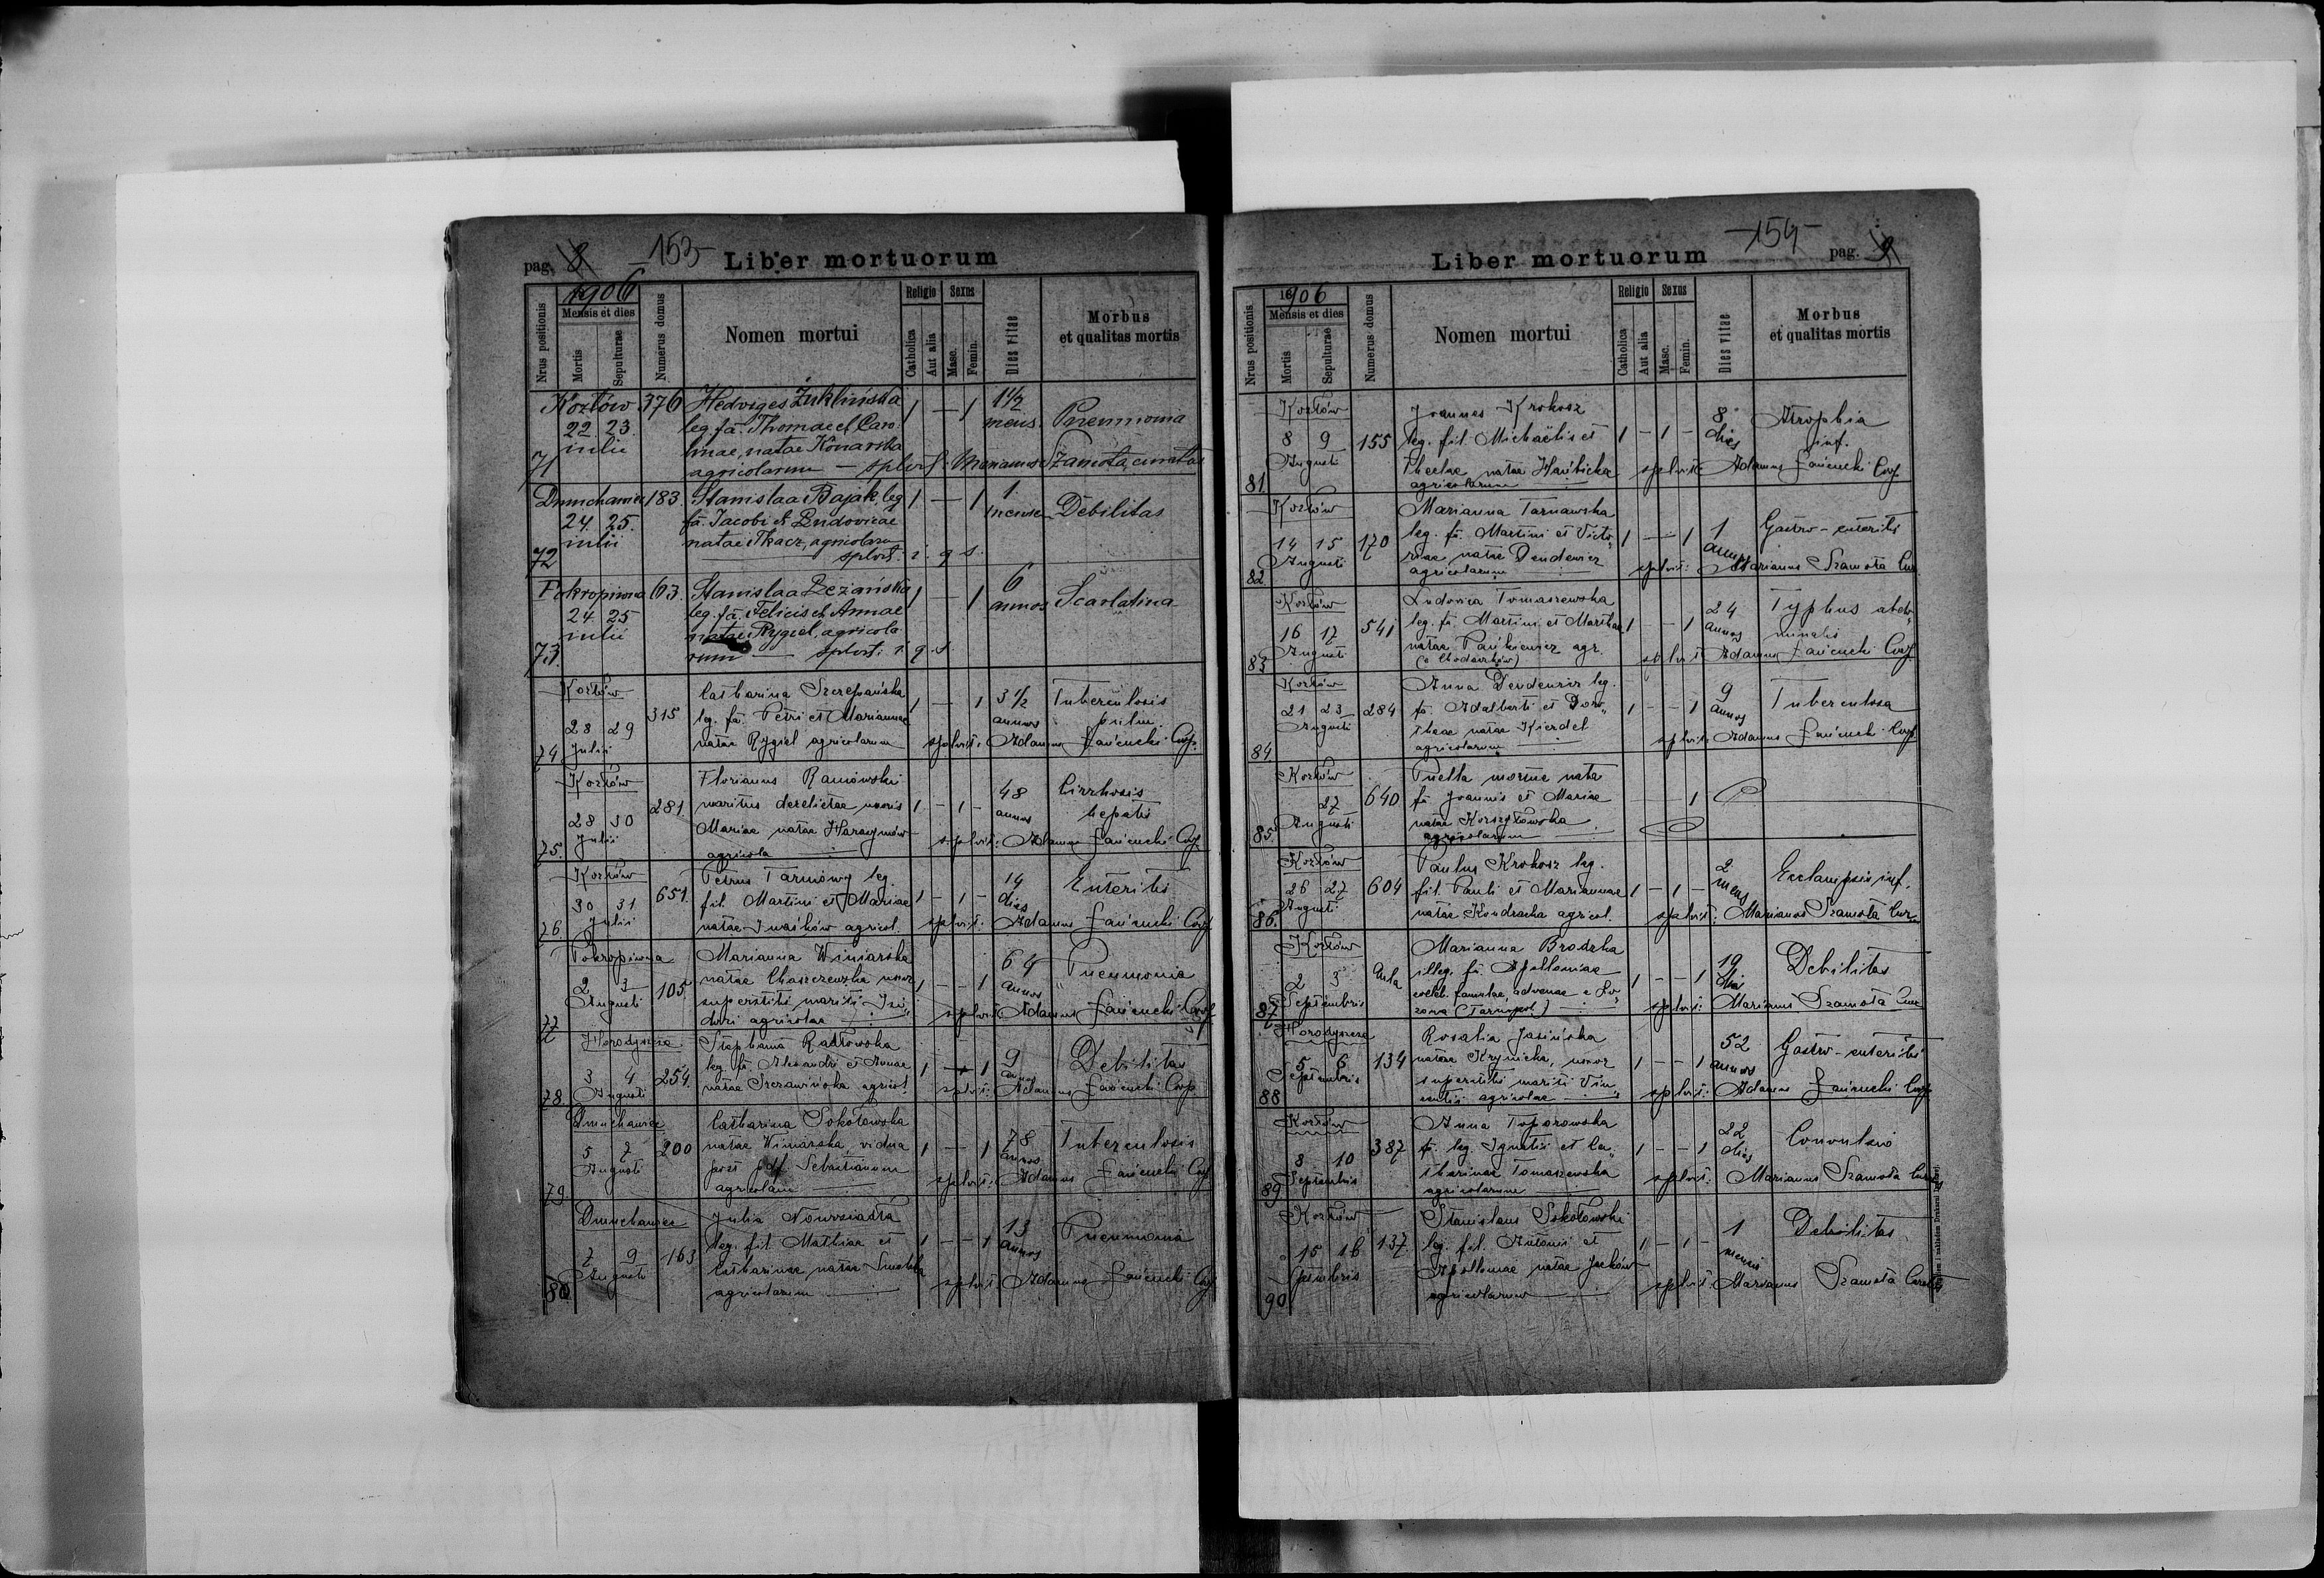 pag. 8 -153-
Liber mortuorum
1906
Nrus positionis
Mensis et dies
Mortis
Sepulturae
Numerus domus
Nomen mortui
Religio
Catholica
Aut alia
Sexus
Masc.
Femin.
Dies vitae
Morbus
et qualitas mortis
71 Kozłów 376 22. 23. iulii
Hedviges Żuklińska
leg. fa. Thomae et Caro-
linae, natae Konarska
agricolarum — splvit. Marianus Szamota, curatus
1 — 1 1 1/2 mens. Pneumonia
72 Dmuchawiec 183. 24. 25. iulii
Stanislaa Bajak leg.
fa. Jacobi et Ludovicae
natae Tkacz, agricolarum
splvit: i. q. s.
1 — 1 1 mense Debilitas
73. Pokropiwna 63. 24. 25 iulii
Stanislaa Leżańska
leg. fa. Felicis et Annae
natae Rygiel, agricola
rum — splvit: i. q. s.
1 — 1 6 annos Scarlatina
74. Kozłów 315 28 29 Julii
Catharina Szczepańska
leg. fa. Petri et Mariannae
natae Rygiel agricolarum
1 — 1 3 1/2 annos Tuberculosis
pulm.
splvit: Adamus Coop.
75. Kozłów 281. 28 30 Julii
Florianus
maritus derelictae uxoris
Mariae natae
agricola
1 — 1 — 48 annos Cirrhosis
hepatis
splvit: Adamus Coop.
76 Kozłów 651. 30 31 Julii
Petrus leg.
fil. Martini et Mariae
natae Iwaśków agricol.
1 — 1 — 14 dies Enteritis
splvit: Adamus Coop.
77 Pokropiwna 105. 2 3 Augusti
Marianna Winiarska
natae uxor
superstitis mariti Isi-
dori agricolae
1 — — 1 64 annos Pneumonia
splvit: Adamus Coop.
78. Horodyszcze 254. 3 4 Augusti
Stephania Radłowska
leg. fa. Alexandri et Annae
natae agricol.
1 — 1 9 annos Debilitas
splvit: Adamus Coop.
79. Dmuchawiec 200 5 7 Augusti
Catharina Sokołowska
natae Winiarska, vidua
post pdf. Sebastianum
agricolam
1 — 1 78 annos Tuberculosis
splvit: Adamus Coop.
80 Dmuchawiec 163 7 9 Augusti
Julia
leg. fil. Mathiae et
Catharinae natae
agricolarum
1 — — 1 13 annos Pneumonia
splvit: Adamus Coop.
-154- pag. 9
Liber mortuorum
1906
Nrus positionis
Mensis et dies
Mortis
Sepulturae
Numerus domus
Nomen mortui
Religio
Catholica
Aut alia
Sexus
Masc.
Femin.
Dies vitae
Morbus
et qualitas mortis
81. Kozłów 155 8 9 Augusti
Joannes Krokosz
leg. fil. Michaëlis et
Theclae natae
agricolarum
1 — 1 — 8 dies Atrophia
inf.
splvit: Adamus Coop.
82. Kozłów 170 14 15 Augusti
Marianna Tarnawska
leg. fa. Martini et Victo-
riae natae Dendewicz
agricolarum
1 — — 1 1 annus Gastro-enteritis
splvit: Marianus Szamota Cur.
83 Kozłów 541 16 17 Augusti
Ludovica Tomaszewska
leg. fa. Martini et Marthae
natae Pańkiewicz agr.
1 — — 1 24 annos Typhus abdo-
minalis
splvit: Adamus Coop.
84. Kozłów 284 21 23 Augusti
Anna Dendewicz leg.
fa. Adalberti et Doro-
theae natae Kierdel
agricolarum
1 — — 1 9 annos Tuberculosa
splvit: Adamus Coop.
85. Kozłów 640 27 Augusti
Puella mortue nata
fa. Joannis et Mariae
natae
agricolarum
1
86. Kozłów 604 26 27 Augusti
Paulus Krokosz leg.
fil. Pauli et Mariannae
natae Kondracka agricol.
1 — 1 — 2 mens Ecclampsis inf.
splvit: Marianus Szamota Cur.
87 Kozłów 2 3 Septembris
Marianna Brodzka
illeg. fa. Apolloniae
coelib. famulae, advenae e
(Tarnopol)
1 — — 1 19 dies Debilitas
splvit: Marianus Szamota Cur.
88 Horodyszcze 134 5 6 Septembris
Rosalia Jasińska
natae Krynicka, uxor
superstitis mariti Vin-
centii agricolae
1 — — 1 52 annos Gastro-enteritis
splvit: Adamus Coop.
89 Kozłów 387 8 10 Septembris
Anna Toporowska
fa. leg. Ignatii et Ca-
tharinae Tomaszewska
agricolarum
1 — — 1 22 dies Convulsio
splvit: Marianus Szamota Curatus
90 Kozłów 137. 15 16 Sptembris
Stanislaus Sokołowski
leg. fil. Antonii et
Apolloniae natae Jacków
agricolarum
1 — 1 — 1 mensis Debilitas
splvit: Marianus Szamota Curatus